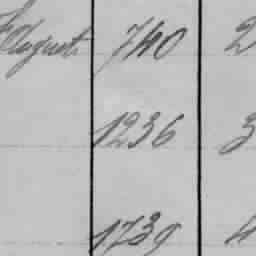 August 740 2
1236 3
1739 4